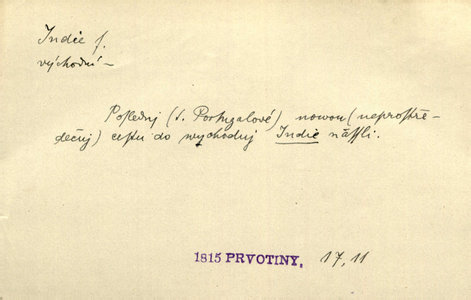 Indie f.
východní –
Poslednj (t. Portugalové) nowou (neprostře-
dečnj) cestu do wychodnj Indie nássli.
1815 PRVOTINY, 17, 11